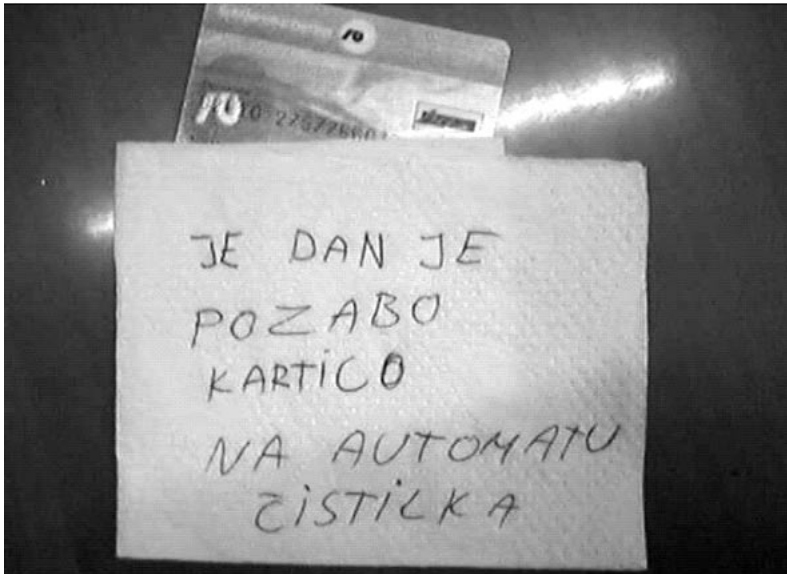 JE DAN JE
POZABO
KARTICO
NA AUTOMATU
ČISTILKA